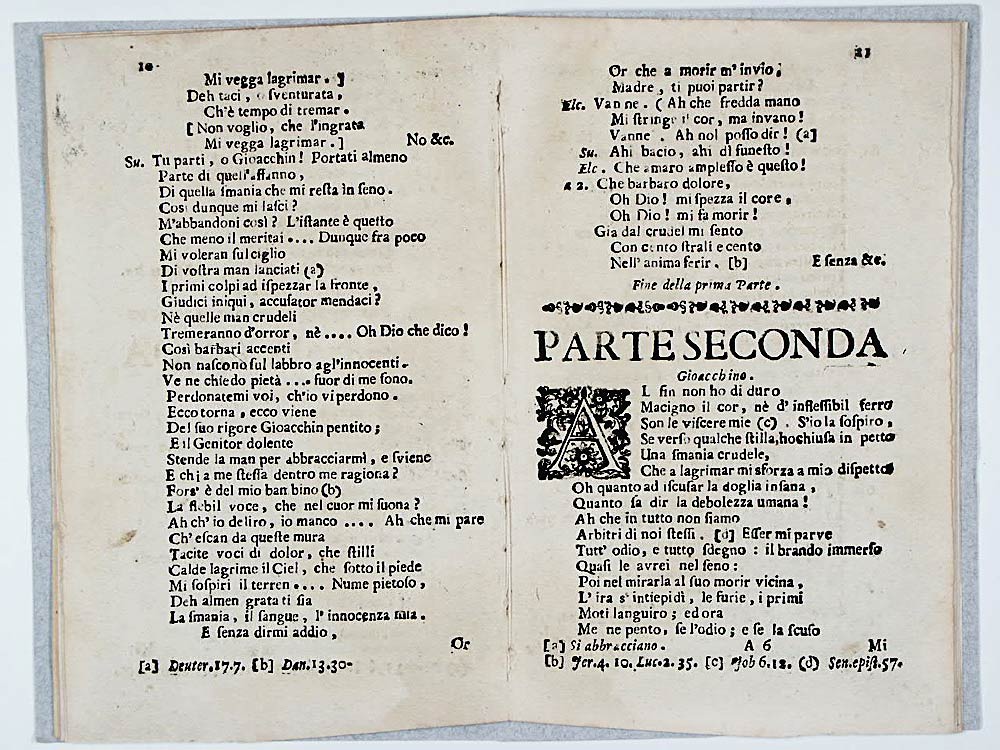 10
Mi vegga lagrimar. ]
Deh taci, o sventurata,
Ch'è tempo di tremar.
[ Non voglio, che l'ingrata
Mi vegga lagrimar. ] No &c.
Su. Tu parti, o Gioacchin! Portati almeno
Parte di quell'affanno,
Di quella smania che mi resta in seno.
Così dunque mi lasci?
M'abbandoni così? L'istante è questo
Che meno il meritai .... Dunque fra poco
Mi voleran sul ciglio
Di vostra man lanciati (a)
I primi colpi ad ispezzar la fronte,
Giudici iniqui, accusator mendaci?
Nè quelle man crudeli
Tremeranno d'orror, nè .... Oh Dio che dico!
Così barbari accenti
Non nascono sul labbro agl'innocenti.
Ve ne chiedo pietà .... fuor di me sono.
Perdonatemi voi, ch'io vi perdono.
Ecco torna, ecco viene
Del suo rigore Gioacchin pentito;
E il Genitor dolente
Stende la man per abbracciarmi, e sviene
E chi a me stessa dentro me ragiona?
Fors' è del mio bambino (b)
La flebil voce, che nel cuor mi suona?
Ah ch'io deliro, io manco .... Ah che mi pare
Ch'escan da queste mura
Tacite voci di dolor, che stilli
Calde lagrime il Ciel, che sotto il piede
Mi sospiri il terren .... Nume pietoso,
Deh almen grata ti sia
La smania, il sangue, l'innocenza mia.
E senza dirmi addio,
Or
[a] Deuter.17.7. [b] Dan.13.30.
Or che a morir m'invio;
Madre, ti puoi partir?
Elc. Vanne. ( Ah che fredda mano
Mi stringe il cor, ma invano!
Vanne. Ah nol posso dir! (a]
Su. Ahi bacio, ahi dì funesto!
Elc. Che amaro amplesso è questo!
a 2. Che barbaro dolore,
Oh Dio! mi spezza il core,
Oh Dio! mi fa morir!
Gia dal crudel mi sento
Con cento strali e cento
Nell'anima ferir. [b] E senza &c.
Fine della prima Parte.
PARTE SECONDA
Gioacchino.
AL fin non ho di duro
Macigno il cor, nè d'inflessibil ferro
Son le viscere mie (c). S'io la sospiro,
Se verso qualche stilla, ho chiusa in petto
Una smania crudele,
Che a lagrimar mi sforza a mio dispetto
Oh quanto ad iscusar la doglia insana,
Quanto sa dir la debolezza umana!
Ah che in tutto non siamo
Arbitri di noi stessi. [d] Esser mi parve
Tutt' odio, e tutto sdegno: il brando immerso
Quasi le avrei nel seno:
Poi nel mirarla al suo morir vicina,
L'ira s'intiepidì, le furie, i primi
Moti languiro; ed ora
Me ne pento, se l'odio; e se la scuso
[a] Si abbracciano. A 6 Mi
[b] Jer.4. 10. Luc.2. 35. [c] Job 6.12. (d) Sen.epist.57.